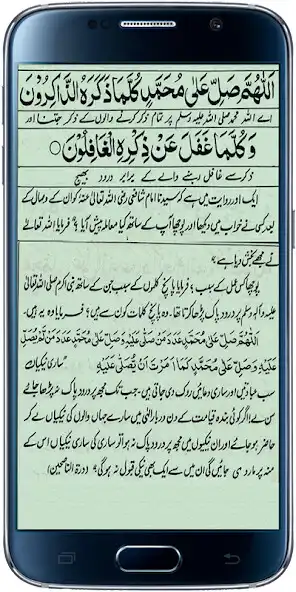 اَللّٰهُمَّ صَلِّ عَلٰى مُحَمَّدٍ كُلَّمَا ذَكَرَهُ الذَّاكِرُوْنَ
اے اللہ محمد صلی اللہ علیہ وسلم پر تمام ذکر کرنے والوں کے ذکر جتنا اور
وَ كُلَّمَا غَفَلَ عَنْ ذِكْرِهِ الْغَافِلُوْنَ ○
ذکر سے غافل رہنے والے کے برابر درود بھیج
ایک اور روایت میں ہے کہ سیدنا امام شافعی رضی اللہ تعالیٰ عنہ کو ان کے وصال کے
بعد کسی نے خواب میں دیکھا اور پوچھا آپ کے ساتھ کیا معاملہ پیش آیا ہے؟ فرمایا اللہ تعالےٰ
نے مجھے بخش دیا ہے؟
پوچھا کس عمل کے سبب؟ فرمایا پانچ کلموں کے سبب جن کے ساتھ نبی اکرم صلی اللہ تعالیٰ
علیہ وآلہ وسلم پر درود پاک پڑھا کرتا تھا۔ وہ پانچ کلمات کون سے ہیں؟ فرمایا وہ یہ ہیں۔
اَللّٰهُمَّ صَلِّ عَلٰى مُحَمَّدٍ عَدَدَ مَنْ صَلّٰى عَلَيْهِ وَصَلِّ عَلٰى مُحَمَّدٍ عَدَدَ مَنْ لَّمْ يُصَلِّ
عَلَيْهِ وَصَلِّ عَلٰى مُحَمَّدٍ كَمَا اَمَرْتَ اَنْ يُّصَلّٰى عَلَيْهِ "ساری نیکیاں
سب عبادتیں اور ساری دعائیں روک دی جاتی ہیں۔ جب تک مجھ پر درود پاک نہ پڑھا جائے
سن لے! اگر کوئی بندہ قیامت کے دن دربار الٰہی میں سارے جہاں والوں کی نیکیاں لے کر
حاضر ہو جائے اور ان نیکیوں میں مجھ پر درود پاک نہ ہوا تو ساری کی ساری نیکیاں اس کے
منہ پر مار دی جائیں گی ان میں سے ایک بھی نیکی قبول نہ ہوگی؟ (درۃ الناصحین)